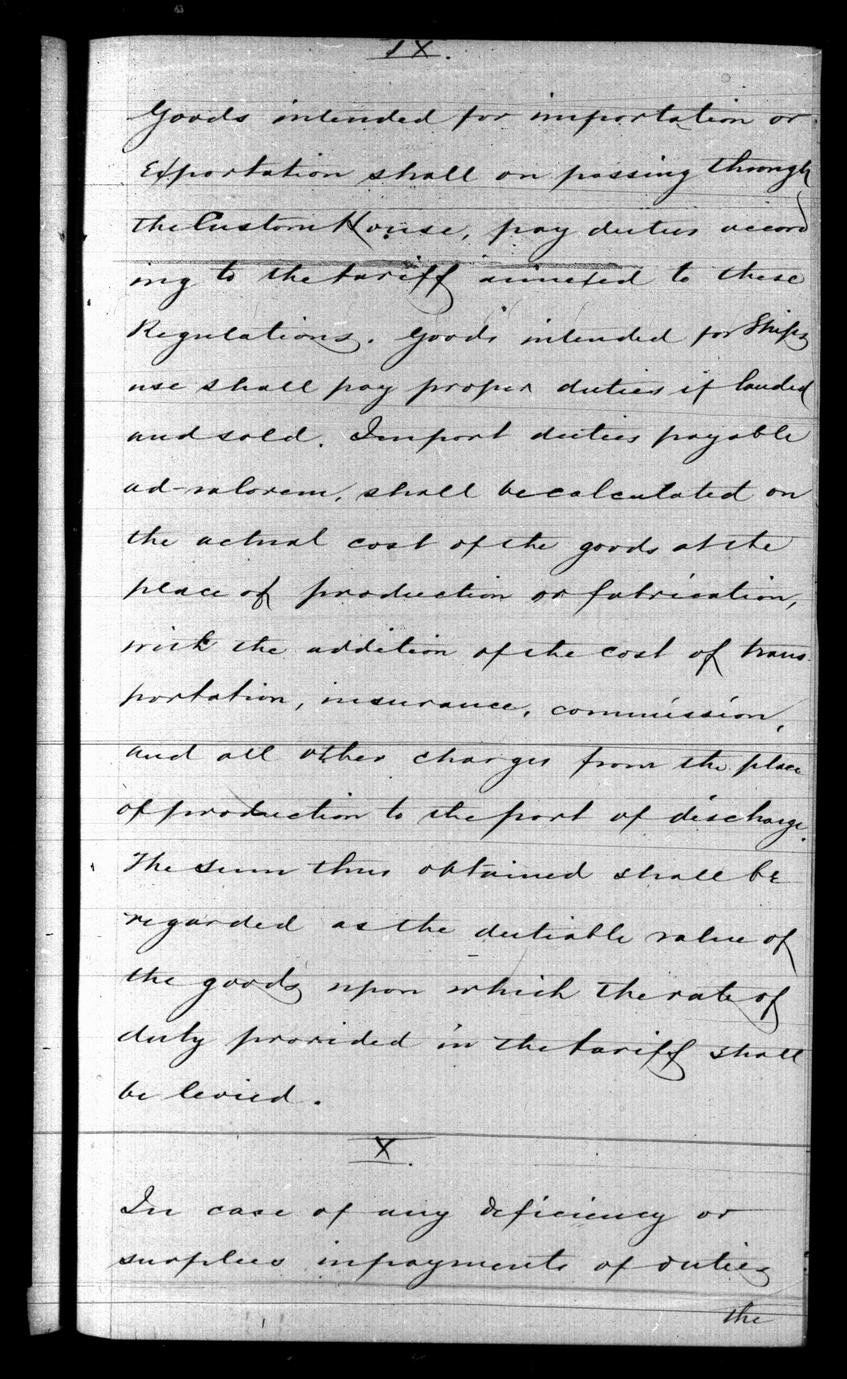 IX.
Goods intended for importation or
Exportation shall on passing through
the Custom House, pay duties accord
ing to the tariff annexed to these
Regulations. Goods intended for Ships
use shall pay proper duties if landed
and sold. Import duties payable
ad-valorem, shall be calculated on
the actual cost of the goods at the
place of production or fabrication,
with the addition of the cost of trans-
portation, insurance, commission,
and all other charges from the place
of production to the port of discharge.
The sum thus obtained shall be
regarded as the dutiable value of
the goods upon which the rate of
duty provided in the tariff shall
be levied.
X.
In case of any deficiency or
surplus in payments of duties
the